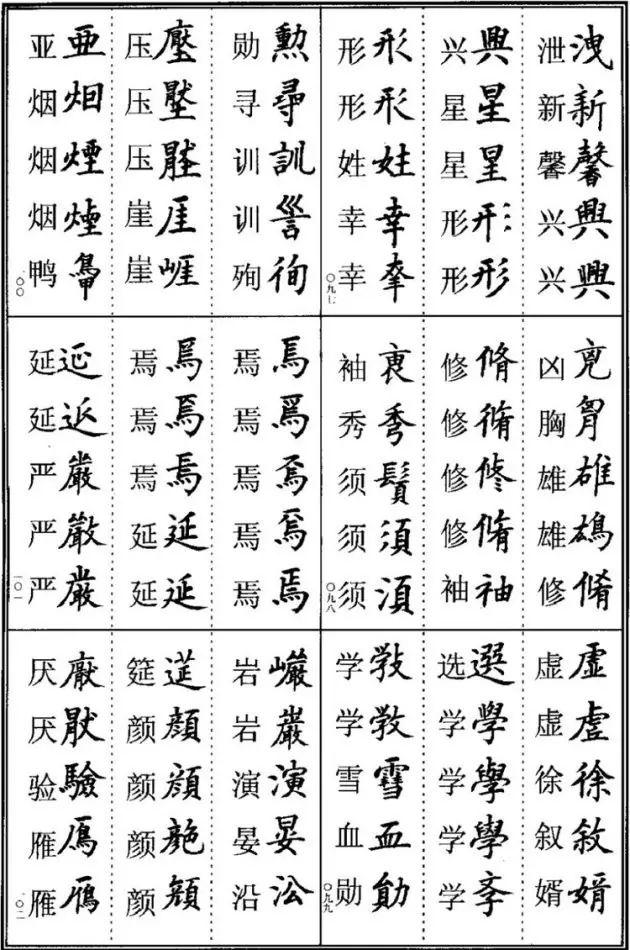 泄洩 新新 馨馨 兴興 兴興
兴興 星星 星星 形形 形形
形形 形形 姓姓 幸幸 幸
〇九七
凶兇 胸胷 雄雄 雄鴆 修脩
修脩 修脩 修修 修脩 袖袖
袖裒 秀秀 须鬚 须須 须湏
〇九八
虚虚 虚虚 徐徐 叙敘 婿婿
选選 学學 学學 学學 学斈
学敩 学教 雪雪 血血 勋勛
〇九九
勋勲 寻尋 训訓 训 殉徇
压壓 压 压 崖厓 崖崕
亚亞 烟烟 烟煙 烟煙 鸭
一〇〇
焉焉 焉焉 焉焉 焉焉 焉焉
焉焉 焉焉 焉焉 延延 延延
延延 延 严嚴 严嚴 严嚴
一〇一
岩巖 岩巖 演演 晏晏 沿沿
筵莚 颜顏 颜顏 颜 颜顏
厌厭 厌 验驗 雁鴈 雁鴈
一〇二